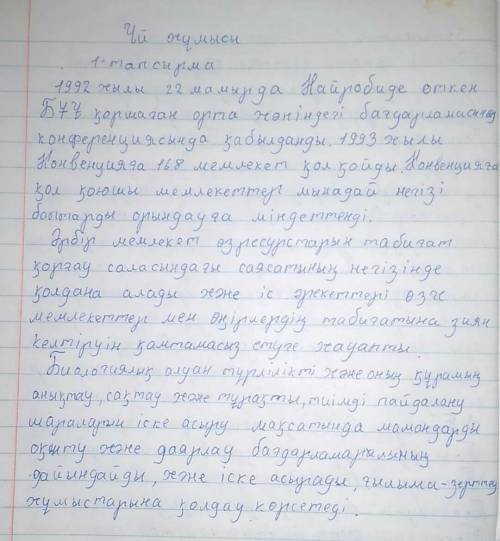 Үй жұмысы
1-тапсырма
1992 жылы 22 мамырда Найробиде өткен
БҰҰ қоршаған орта жөніндегі бағдарламасының
конференциясында қабылданды. 1993 жылы
Конвенцияға 168 мемлекет қол қойды. Конвенцияға
қол қоюшы мемлекеттер мынадай негізі
бағыттарды орындауға міндеттенді.
Әрбір мемлекет өз ресурстарын табиғат
қорғау саласындағы саясатының негізінде
қолдана алады және іс әрекеттері өзге
мемлекеттер мен өңірлердің табиғатына зиян
келтіруін қамтамасыз етуге жауапты.
Биологиялық алуан түрлілікті және оның құрамын
анықтау, сақтау және тұрақты, тиімді пайдалану
шараларын іске асыру мақсатында мамандарды
оқыту және даярлау бағдарламаларының
дайындайды, және іске асырады, ғылыми-зерттеу
жұмыстарына қолдау көрсетеді.